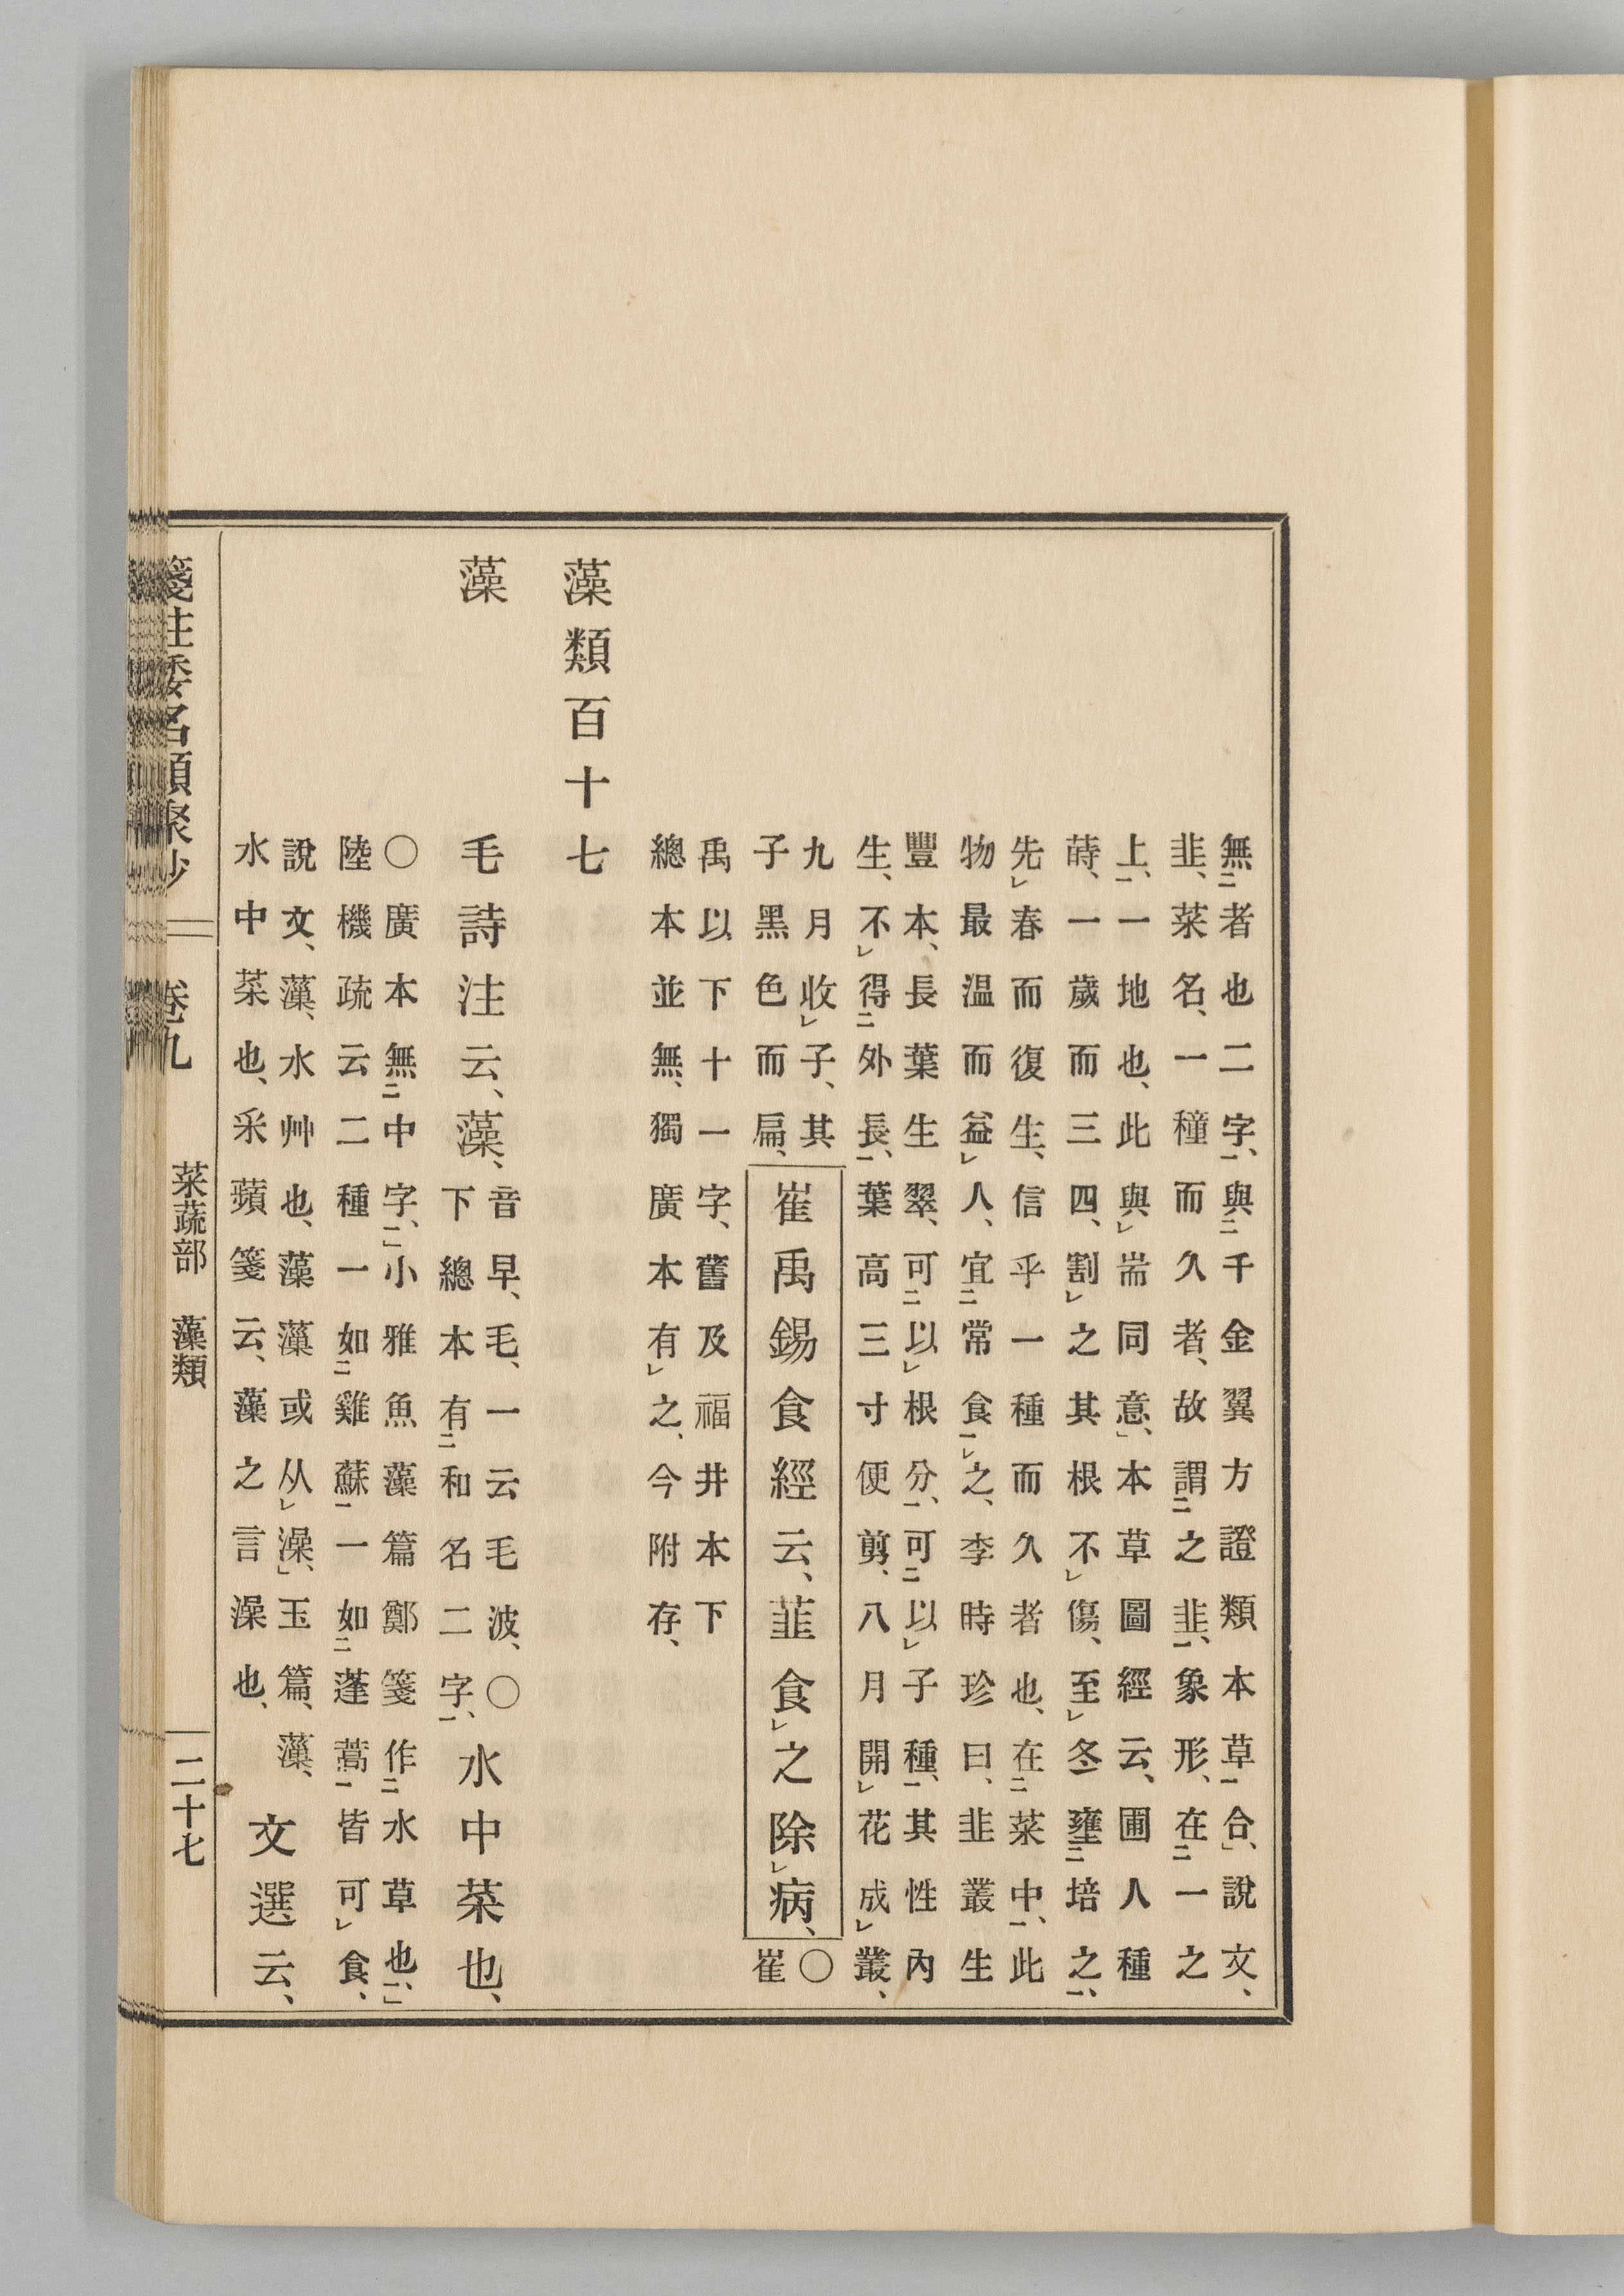 無者也二字、與千金翼方證類本草合、說文、
韭、菜名、一穜而久者、故謂之韭、象形、在一之
上、一地也、此與耑同意、本草圖經云、圃人種
蒔、一歲而三四、割之其根不傷、至冬壅培之、
先春而復生、信乎一種而久者也、在菜中、此
物最温而益人、宜常食之、李時珍曰、韭叢生
豐本、長葉生翠、可以根分、可以子種、其性內
生、不得外長、葉高三寸便剪、八月開花成叢、
九月收子、其
子黑色而扁、
崔禹錫食經云、韮食之除病、
○
崔
禹以下十一字、舊及福井本下
總本並無、獨廣本有之、今附存、
藻類百十七
藻 毛詩注云、藻、
音早、毛、一云毛波、○
下總本有和名二字、
水中菜也、
○廣本無中字、小雅魚藻篇鄭箋作水草也、
陸機疏云二種一如雞蘇一如蓬蒿皆可食、
說文、薻、水艸也、藻薻或从澡、玉篇、薻、
水中菜也、采蘋箋云、藻之言澡也、
文選云、
箋注倭名類聚抄 卷九 菜蔬部 藻類 二十七